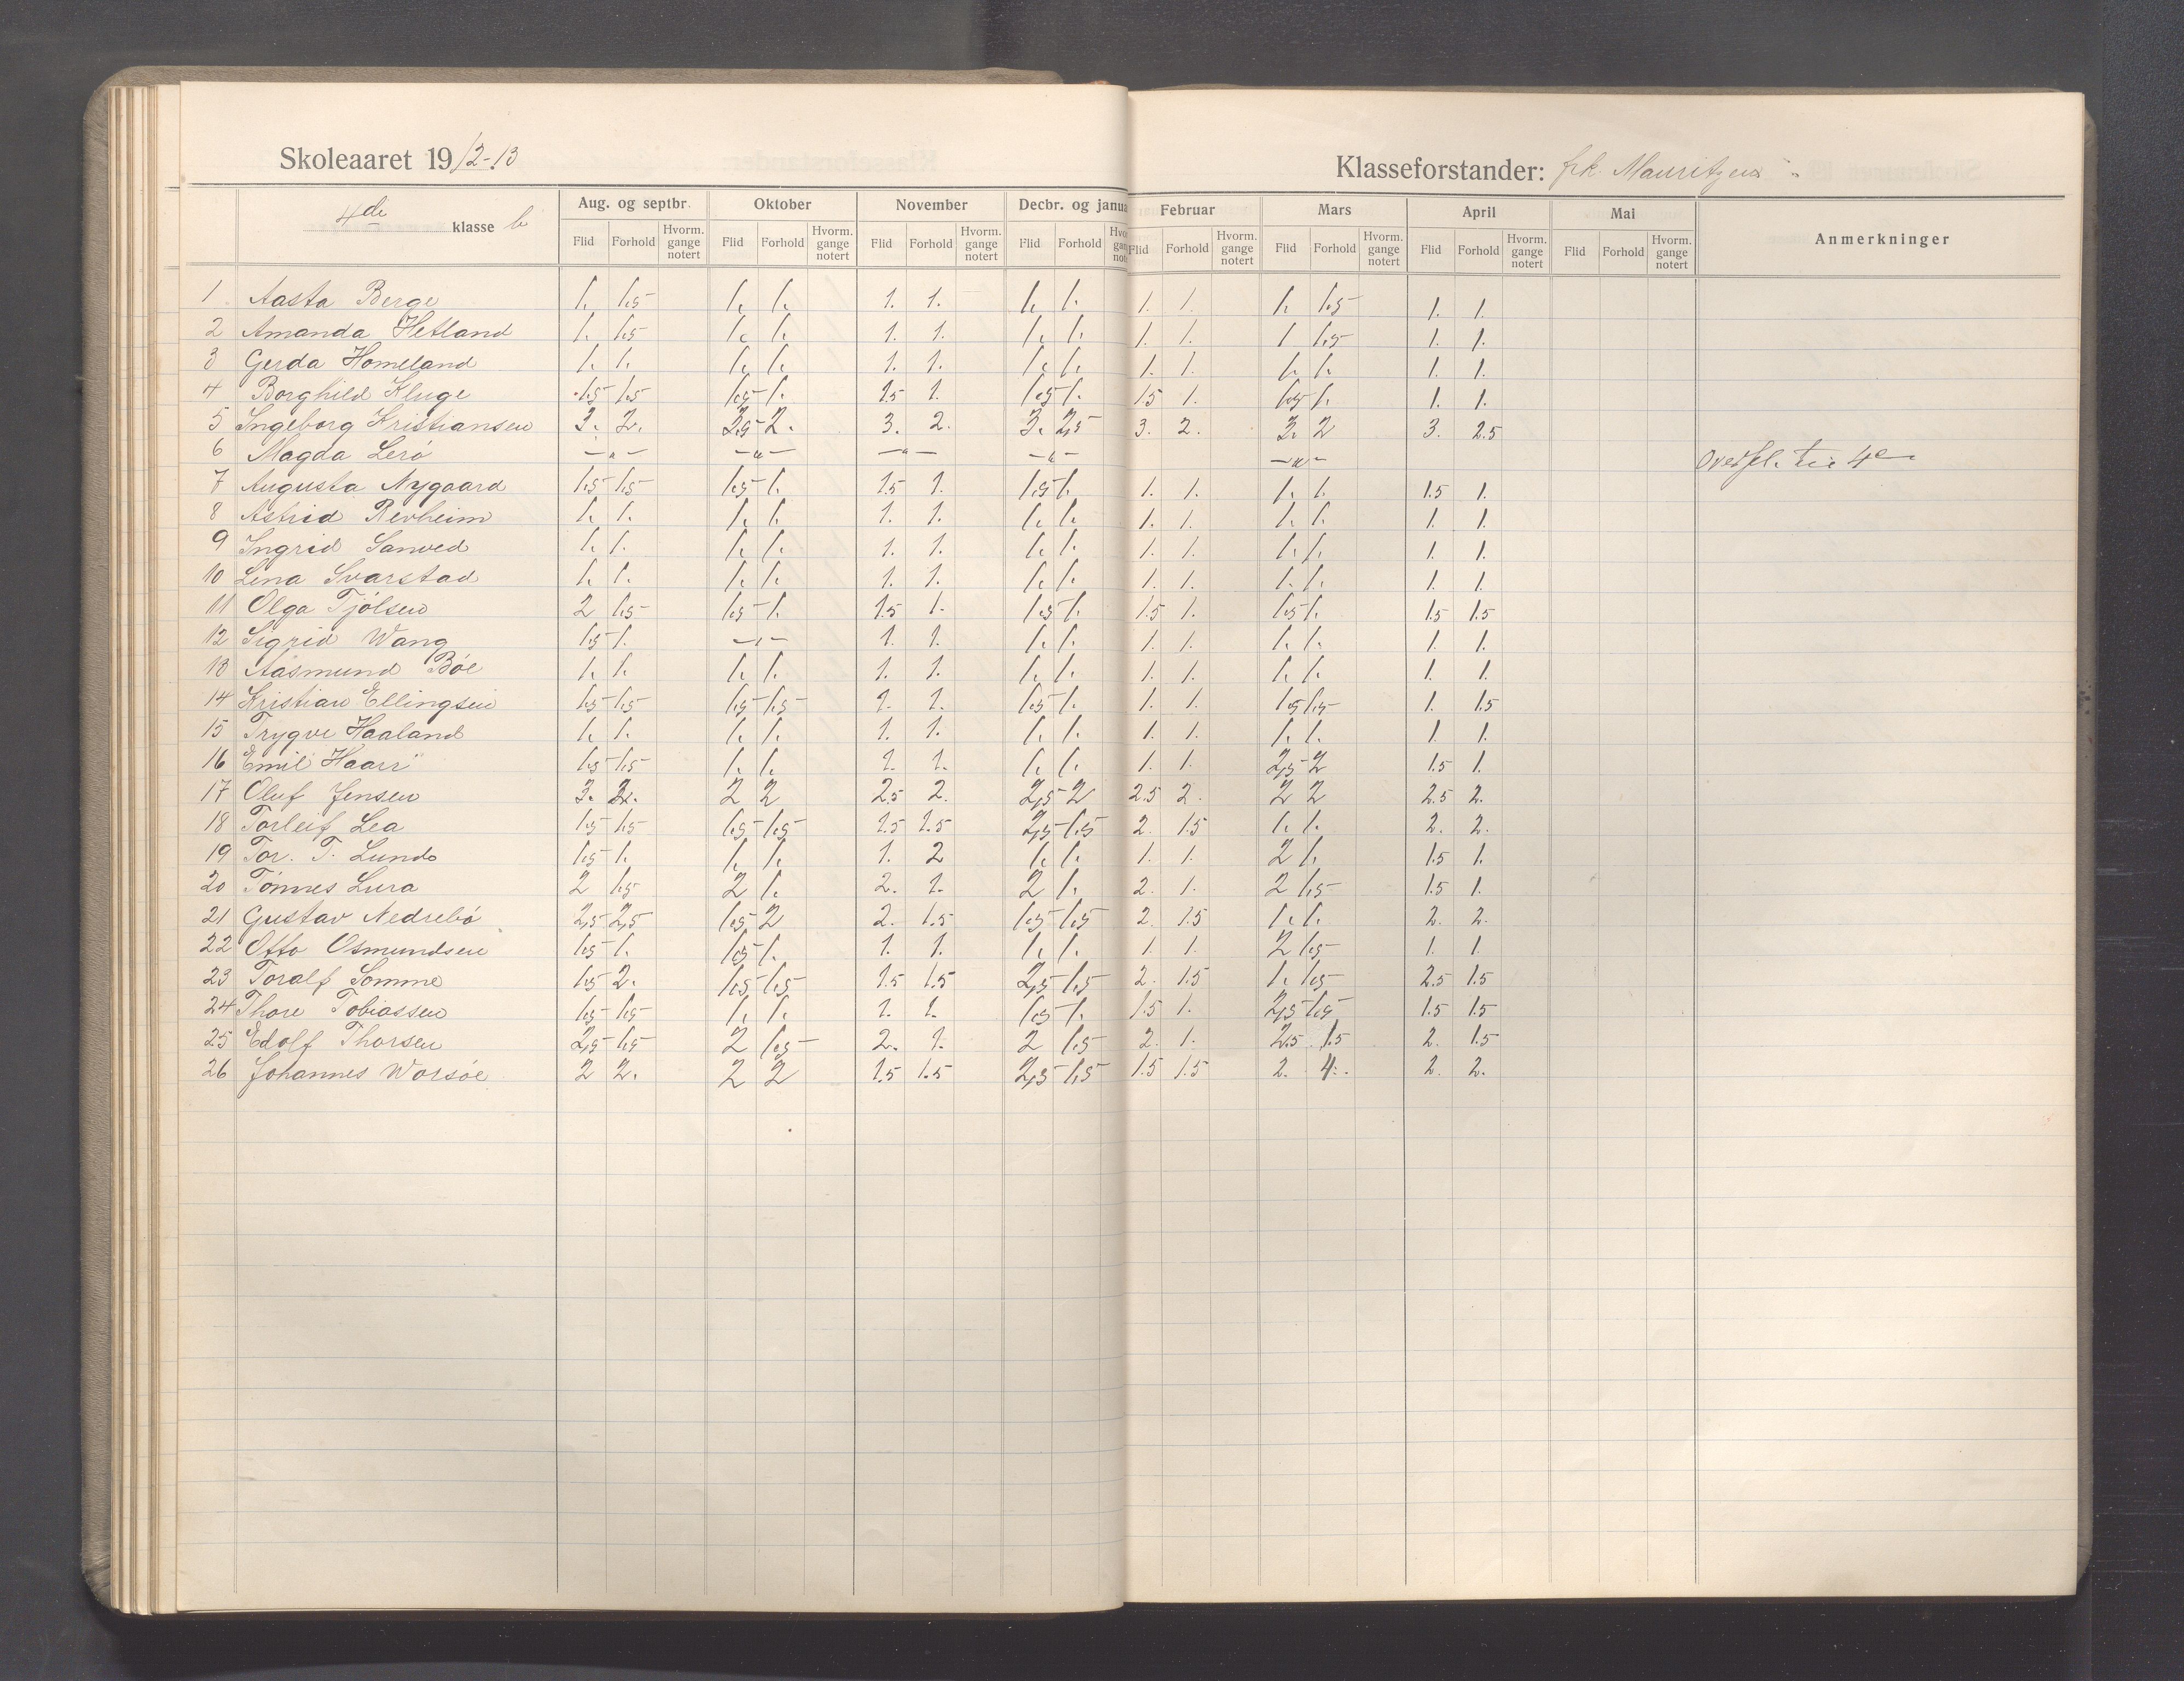 Skoleaaret 1912-13
Klasseforstander: frk. Mauritzen
4de klasse b
Aug. og septbr. Oktober November Decbr. og janua Februar Mars April Mai Anmerkninger
Flid Forhold Hvorm. gange notert Flid Forhold Hvorm. gange notert Flid Forhold Hvorm. gange notert Flid Forhold Flid Forhold Hvorm. gange notert Flid Forhold Hvorm. gange notert Flid Forhold Hvorm. gange notert Flid Forhold Hvorm. gange notert
1 Aasta Berge 1. 1.5 1. 1. 1. 1. 1. 1. 1. 1. 1. 1.5 1. 1.
2 Amanda Hetland 1. 1.5 1. 1. 1. 1. 1. 1. 1. 1. 1 1.5 1. 1.
3 Gerda Homeland 1. 1. 1. 1. 1. 1. 1. 1. 1. 1. 1. 1. 1. 1.
4 Borghild Kluge 1.5 1.5 1.5 1. 1.5 1. 1.5 1. 1.5 1. 1.5 1. 1. 1.
5 Ingeborg Kristiansen 3. 2. 3.5 2. 3. 2. 3. 2,5 3. 2. 3. 2 3. 2.5
6 Magda Lerö —"— —"— —"— —"— —"— Overfl. til 4c
7 Augusta Nygaard 1.5 1.5 1.5 1. 1.5 1. 1.5 1. 1. 1. 1. 1. 1.5 1.
8 Astrid Revheim 1. 1. 1. 1. 1. 1. 1. 1. 1. 1. 1. 1. 1. 1.
9 Ingrid Sanved 1. 1. 1. 1. 1. 1. 1. 1. 1. 1. 1. 1. 1. 1.
10 Lena Svarstad 1. 1. 1. 1. 1. 1. 1. 1. 1. 1. 1. 1. 1. 1.
11 Olga Tjölsen 2 1.5 1.5 1. 1.5 1. 1.5 1. 1.5 1. 1.5 1. 1.5 1.5
12 Sigrid Wang 1.5 1. —"— 1. 1. 1. 1. 1. 1. 1. 1. 1. 1.
13 Aasmund Böe 1. 1. 1. 1. 1. 1. 1. 1. 1. 1. 1. 1. 1. 1.
14 Kristian Ellingsen 1.5 1.5 1.5 1.5 1. 1. 1.5 1. 1. 1. 1.5 1.5 1. 1.5
15 Trygve Haaland 1. 1. 1. 1. 1. 1. 1. 1. 1. 1. 1. 1. 1. 1.
16 Emil Haarr 1.5 1.5 1. 1. 1. 1. 1. 1. 1. 1. 2,5 2 1.5 1.
17 Oluf Jensen 3. 2. 2 2 2.5 2. 2,5 2 2.5 2. 2 2 2.5 2.
18 Torleif Lea 1.5 1.5 1.5 1.5 1.5 1.5 2,5 1.5 2. 1.5 1. 1. 2. 2.
19 Tor. T. Lunde 1.5 1. 1. 1. 1. 2 1. 1. 1. 1. 2 1. 1.5 1.
20 Tönnes Lura 2 1.5 2 1. 2. 1. 2 1. 2. 1. 2 1.5 1.5 1.
21 Gustav Nedrebö 2,5 2,5 1.5 2 2. 1.5 1.5 1.5 2. 1.5 1. 1. 2. 2.
22 Otto Osmundsen 1.5 1. 1.5 1. 1. 1. 1. 1. 1. 1. 2 1.5 1. 1.
23 Toralf Somme 1.5 2. 1.5 1.5 1.5 1.5 2,5 1.5 2. 1.5 1. 1.5 2.5 1.5
24 Thore Tobiassen 1.5 1.5 1. 1. 1. 1. 1.5 1. 1.5 1. 2,5 1.5 1.5 1.5
25 Edolf Thorsen 2,5 1.5 2 1.5 2. 1. 2 1.5 2. 1. 2.5 1.5 2. 1.5
26 Johannes Worsöe 2 2. 2 2 1.5 1.5 2,5 1,5 1.5 1.5 2. 4. 2. 2.